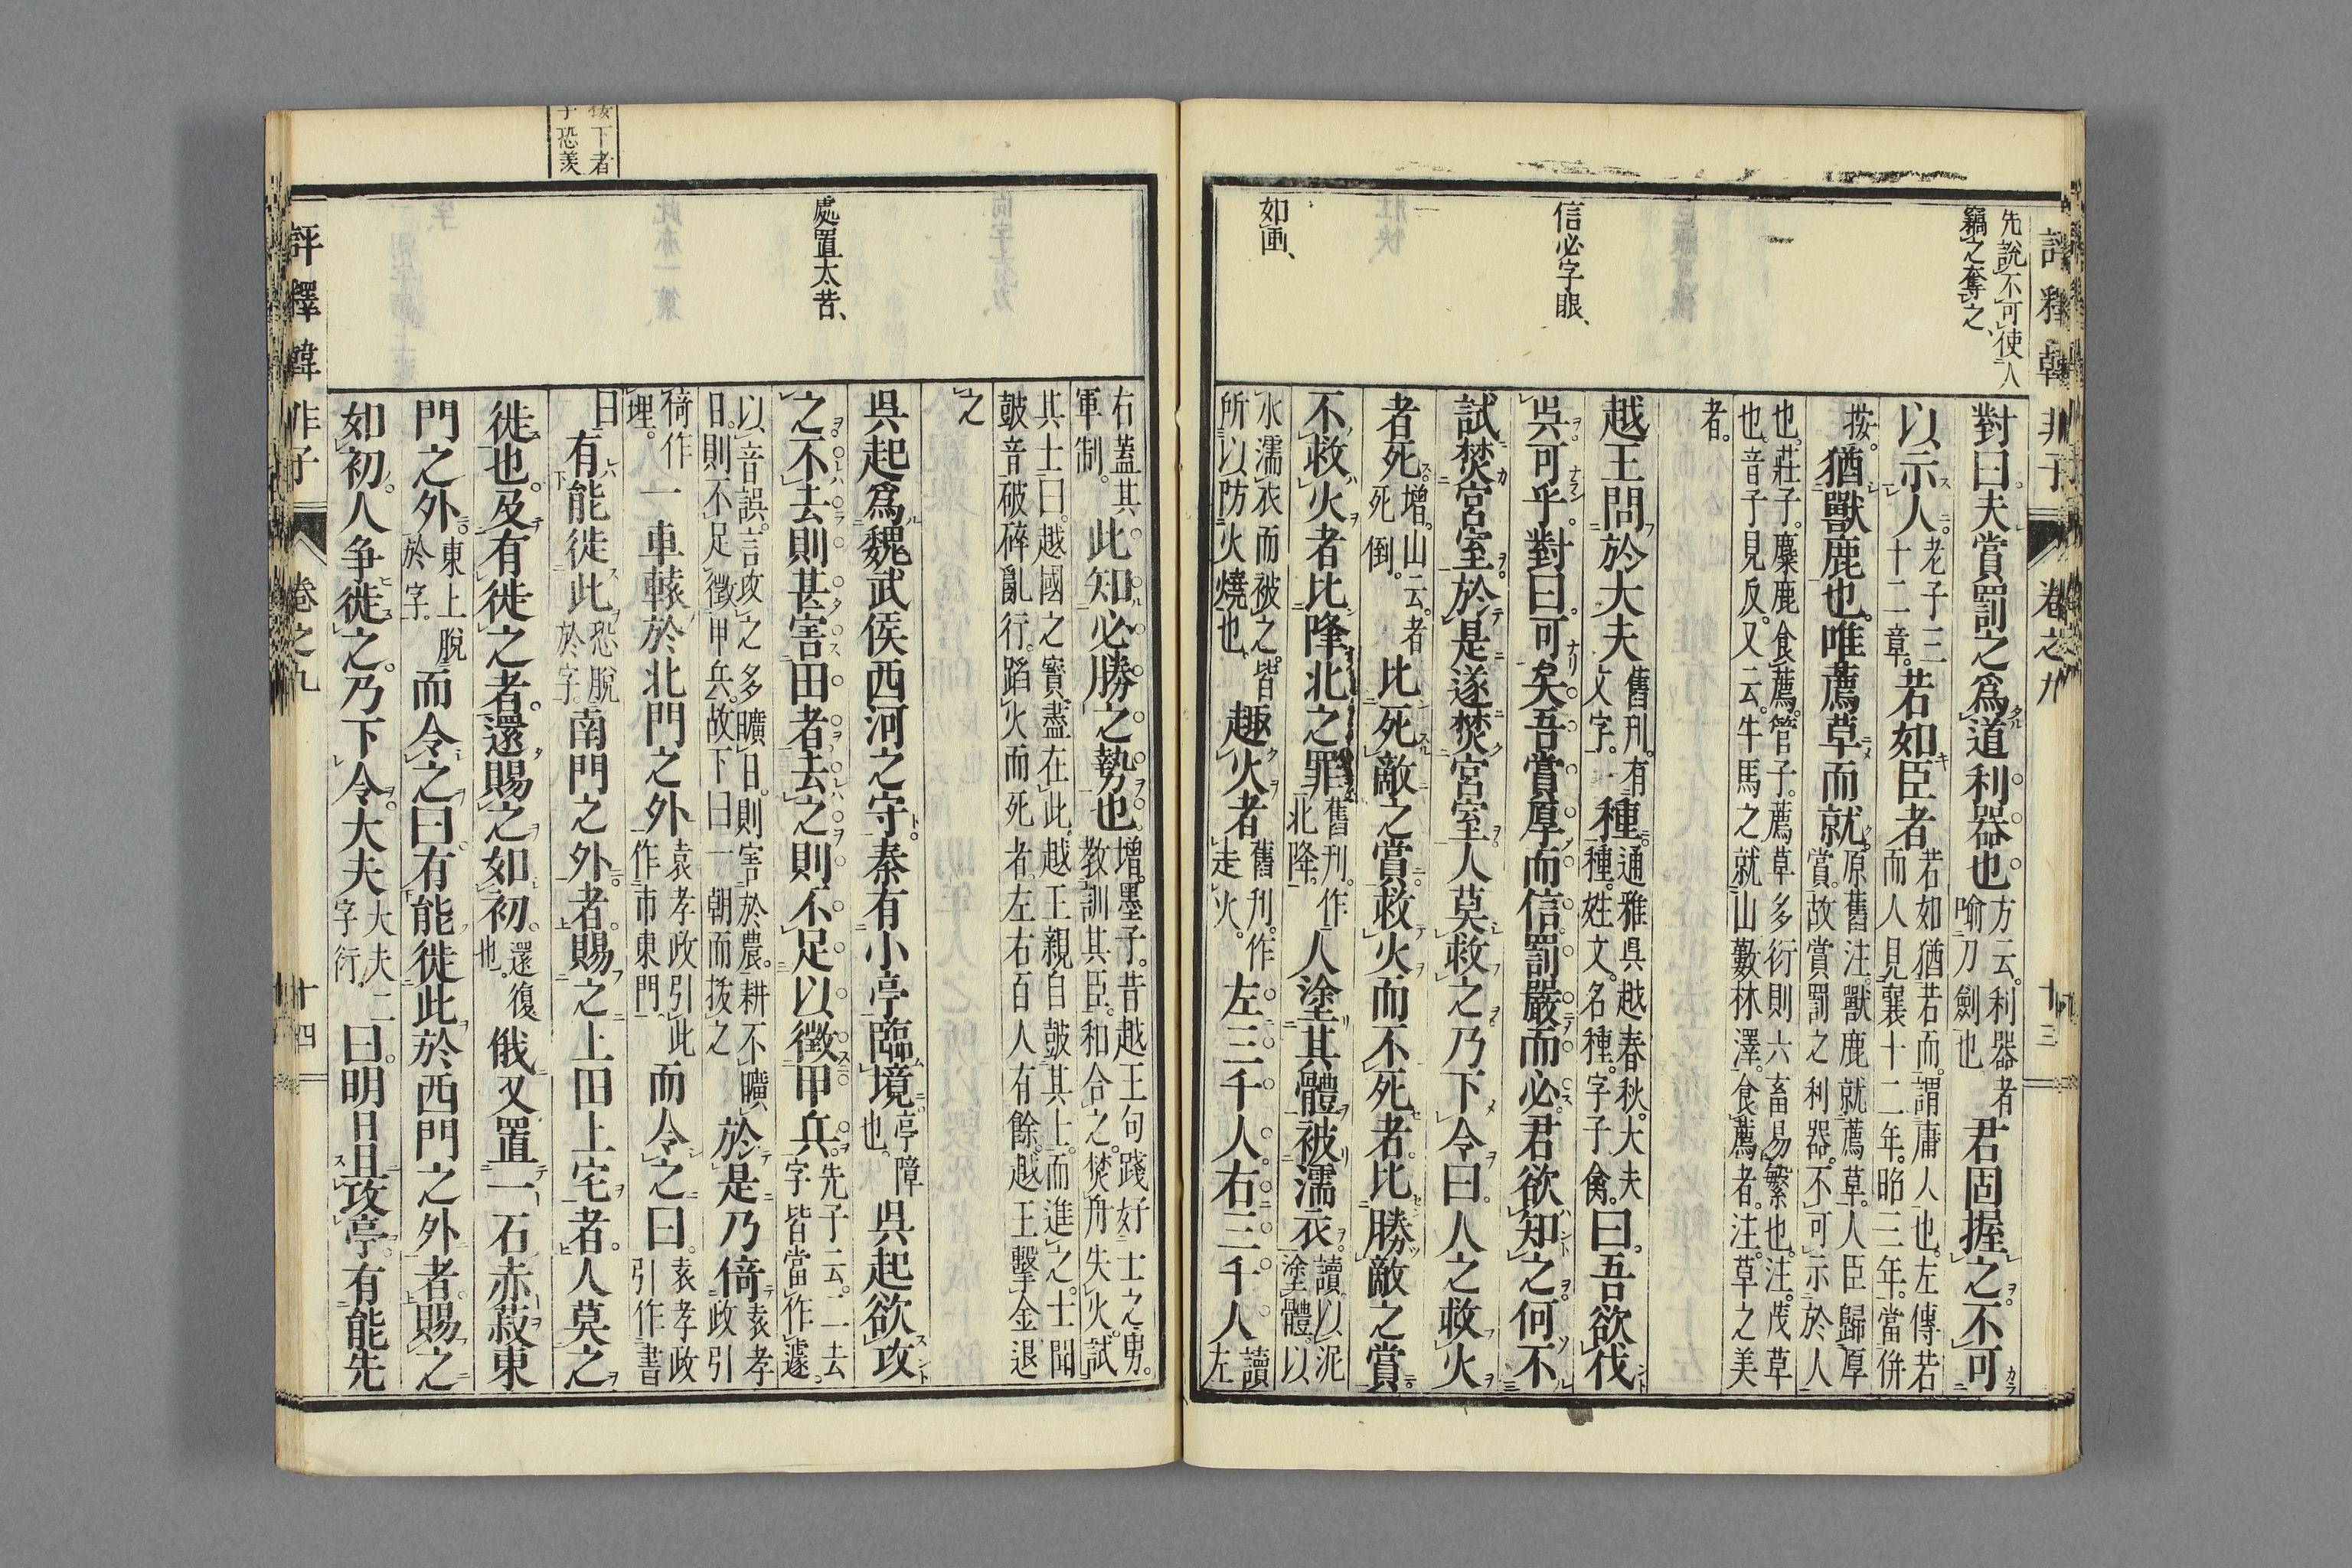 評釋韓非子 卷之九 十三
先說不可使人
竊之奪之、
信必字眼、
如画、
對曰夫賞罰之爲道利器也方云利器者喻刀劍也君固握之不可
以示人老子三十二章若如臣者若如猶若而謂庸人也左傳若而人見襄十二年昭三年當併
按猶獸鹿也唯薦草而就原舊注獸鹿就薦草人臣歸厚賞故賞罰之利器不可示於人
也莊子麋鹿食薦管子薦草多衍則六畜易繁也注茂草也音子見反又云牛馬之就山藪林澤食薦者注草之美
者
越王問於大夫舊刊有文字種通雅吳越春秋大夫種姓文名種字子禽曰吾欲伐
吳可乎對曰可矣吾賞厚而信罰嚴而必君欲知之何不
試焚宮室於是遂焚宮室人莫救之乃下令曰人之救火
者死增山云者死倒比死敵之賞救火而不死者比勝敵之賞
不救火者比降北之罪舊刊作北降人塗其體被濡衣讀以泥塗體以
水濡衣而被之皆所以防火燒也趣火者舊刊作走火左三千人右三千人讀左
右蓋其軍制此知必勝之勢也增墨子昔越王句踐好士之勇教訓其臣和合之焚舟失火試
其士曰越國之寶盡在此越王親自鼓其士而進之士聞鼓音破碎亂行蹈火而死者左右百人有餘越王擊金退
之
吳起爲魏武侯西河之守秦有小亭臨境亭障也吳起欲攻
之不去則甚害田者去之則不足以徵甲兵先子云一去字皆當作遽
以音誤言攻之多曠日則害於農耕不曠日則不足徵甲兵故下曰一朝而拔之於是乃倚袁孝政引
倚作埋一車轅於北門之外袁孝政引此作市東門而令之曰袁孝政引作書
曰有能徙此恐脫於字南門之外者賜之上田上宅者人莫之
徙也及有徙之者還賜之如初還復也俄又置一石赤菽東
門之外東上脫於字而令之曰有能徙此於西門之外者賜之
如初人争徙之乃下令大夫大夫二字衍曰明日且攻亭有能先
處置太苦、
按下者
子恐羨
評釋韓非子 卷之九 十四